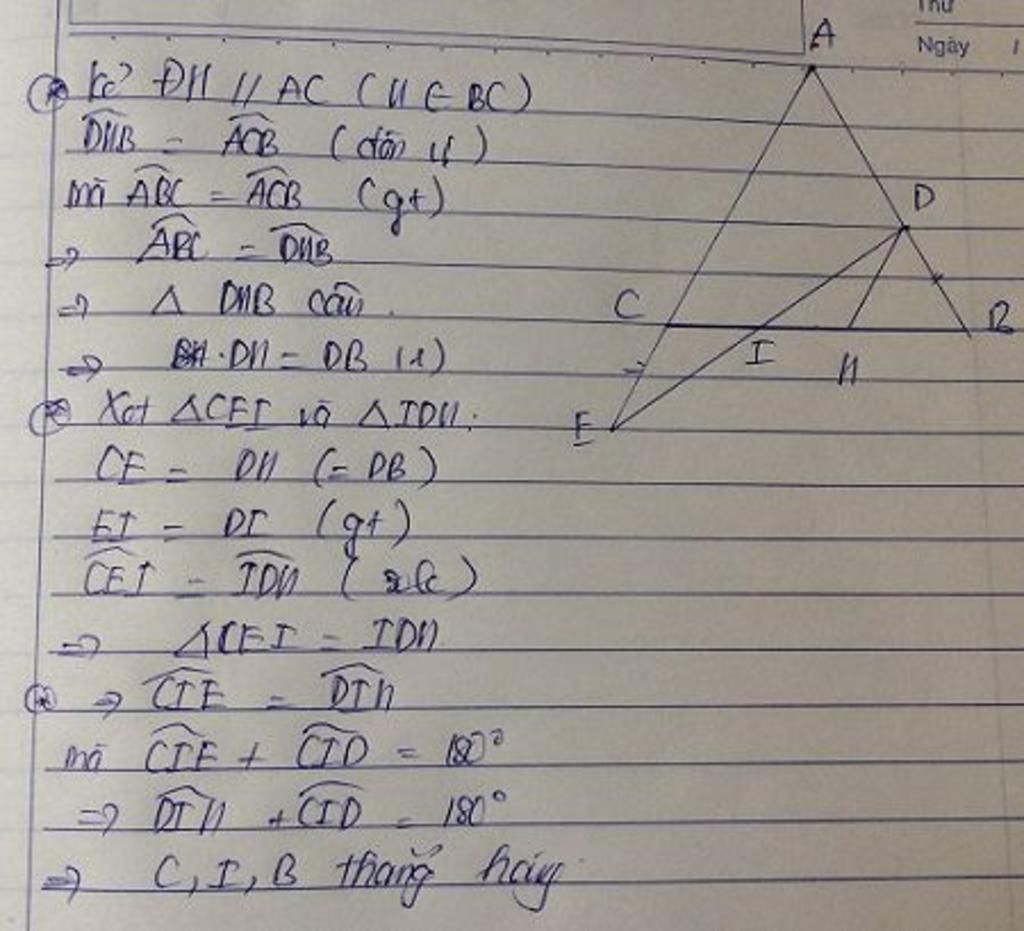 Thứ
Ngày 1
A
Kẻ DH // AC (H ∈ BC)
DHB = ACB (đồng vị)
mà ABC = ACB (gt)
D
=> ABC = DHB
=> Δ DHB cân.
C
B
=> DH = DB (1)
I
H
Xét ΔCEI và ΔIDH:
E
CE = DH (= DB)
EI = DI (gt)
CEI = IDH (slt)
=> ΔCEI = IDH
=> CIE = DIH
mà CIE + CID = 180°
=> DIH + CID = 180°
=> C, I, B thẳng hàng